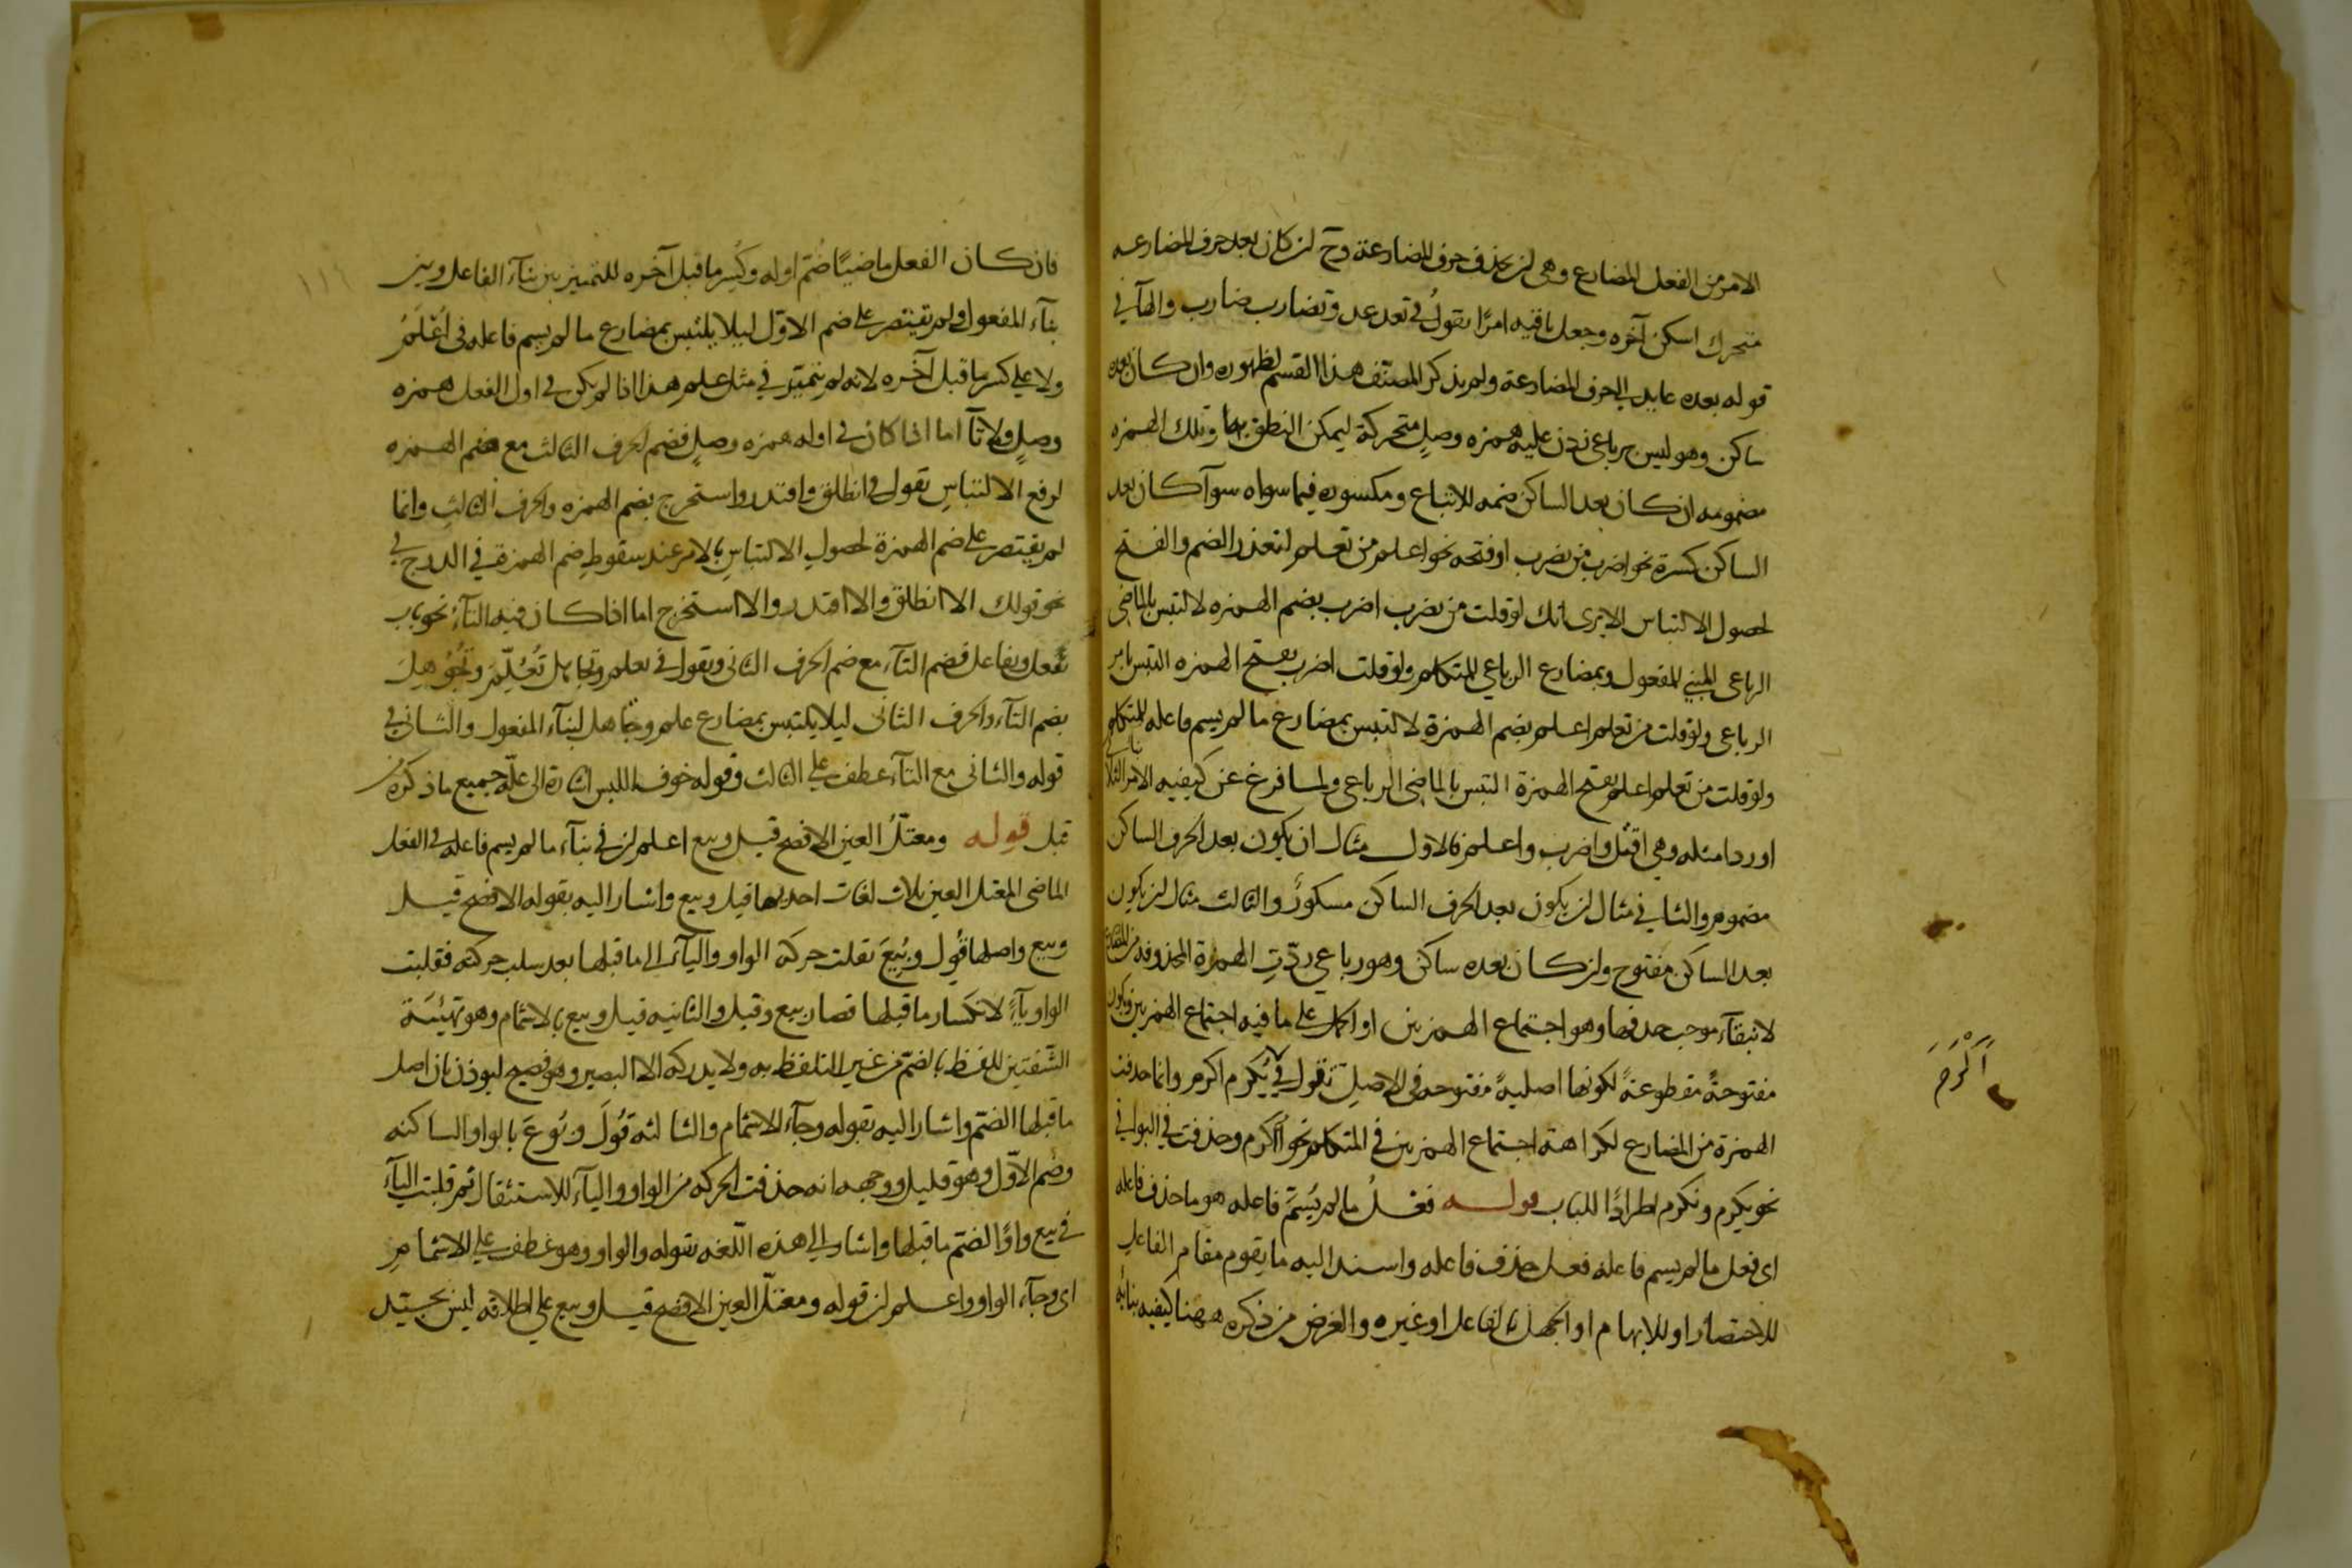 الامر من الفعل المضارع وهى ان يحذف حرف المضارعة وح ان كان بعد حرف المضارعه
متحرك اسكن آخره وجعل باقيه امرًا تقولُ في تعد عد وتضارب ضارب والهآ في
قوله بعده عايد الى حرف المضارعة ولم يذكر المصنف هذا القسم لظهوره وان كان بعده
ساكن وهو ليس برباعى زدن عليه همزه وصلٍ متحركة ليمكن النطق بها وتلك الهمزه
مضمومه ان كان بعد الساكن ضمه للاتباع ومكسوره فيما سواه سوآ كان بعد
الساكن كسرة نحو اضرب من يضرب او فتحه نحو اعلم من تعلم لتعذر الضم والفتح
لحصول الالتباس الا يرى انك لو قلت من يضرب اضرب بضم الهمزه لالتبس بالماضى
الرباعى المبنى للمفعول وبمضارع الرباعي للمتكلم ولو قلت اضرب بفتح الهمزه التبس بامر
الرباعى ولو قلت من تعلم اعلم بضم الهمزةِ لالتبس بمضارع ما لم يسم فاعله للمتكلم
ولو قلت من تعلم اعلم بفتح الهمزة التبس بالماضى الرباعى ولما فرغ عن كيفيه الامر الثلاثى
اورد امثله وهي اقتُل واضرب واعلم فالاول مثال ان يكون بعد الحرف الساكن
مضموم والثاني مثال ان يكون بعد الحرف الساكن مسكورٌ والثالث مثال ان يكون
بعد الساكن مفتوح وان كان بعده ساكن وهو رباعي ردّتِ الهمزة المحذوفه من المضارع
لانتفآء موجب حذفها وهو اجتماع الهمزتين او الحمل على ما فيه اجتماع الهمزتين ويكون
مفتوحةً مقطوعةً لكونها اصليةً مفتوحه فى الاصلِ تقول في يُكرم اكرم وانما حذفت
الهمزة من المضارع لكراهة اجتماع الهمزتين في المتكلم نحو أأكرم وحذفت في البواقي
نحو يكرم ونكرم اطرادًا للباب قوله فعلُ ما لم يُسَمَّ فاعله هو ما حذف فاعله
اى فعل ما لم يسم فاعله فعل حذف فاعله واسند اليه ما يقوم مقام الفاعل
للاختصار او للابهام او الجهل بالفاعل او غيره والغرض من ذكره ههنا كيفيه بنائه
أَكْرَمَ
١١٦
فان كان الفعل ماضيًا ضُمّ اوله وكُسِر ما قبل آخره للتمييز بين بنآء الفاعل وبين
بنآء المفعول ولم يقتصر على ضم الاوّل ليلا يلتبس بمضارع ما لم يسم فاعله فى اُعْلَمُ
ولا على كسر ما قبل آخره لانه لم يتميّز في مثل علم هذا اذا لم يكن في اول الفعل همزه
وصلٍ ولا تآ اما اذا كان في اوله همزه وصلٍ فضم الحرف الثالث مع ضم الهمزه
لرفع الالتباسِ تقول في انطلق واقتدر واستخرج بضم الهمزه والحرف الثالثِ وانما
لم يقتصر على ضم الهمزة لحصول الالتباسِ بالامر عند سقوطِ ضم الهمزة في الدرج في
نحو قولك الا انطلق والا اقتدر والا استخرج اما اذا كان فيه التآءُ نحو باب
تفعل وتفاعل فضم التآء مع ضم الحرف الثانى وتقول في تعلم وتجاهل تُعُلِّمَ وتُجُوْهِلَ
بضم التآء والحرف الثانى ليلا يلتبس بمضارع علم وجاهل لبنآء المفعول والثانى في
قوله والثانى مع التآء عطف على الثالث وقوله خوف اللبس اشارة الى علّة جميع ما ذكره من
قبل قوله ومعتلُّ العين الافصح قيل وبيع اعلم ان في بنآء ما لم يسم فاعله فى الفعل
الماضى المعتل العين ثلاث لغات احديها قيل وبيع واشار اليه بقوله الافصح قيل
وبيع واصلها قُوِل وبُيِعَ نقلت حركة الواو واليآء الى ما قبلها بعد سلب حركته فقلبت
الواو يآءً لانكسار ما قبلها فصار بيع وقيل والثانيه قيل وبيع بالاشمام وهو تهيئَة
الشفتين للفظ بالضم من غير التلفظ به ولا يدركه الا البصير وهو فصيح ليوذن بان اصل
ما قبلها الضم واشار اليه بقوله وجآء الاشمام والثالثه قُولَ وبُوعَ بالواو الساكنه
وضم الاوّل وهو قليل ووجهه انه حذفت الحركه من الواو واليآء للاستثقال ثم قلبت اليآء
في بيع واوًا لضم ما قبلها واشار الى هذه اللغه بقوله والواو وهو عطف على الاشمام
اى وجآء الواو واعلم ان قوله ومعتلّ العين الافصح قيل وبيع على اطلاقه ليس بجيّد